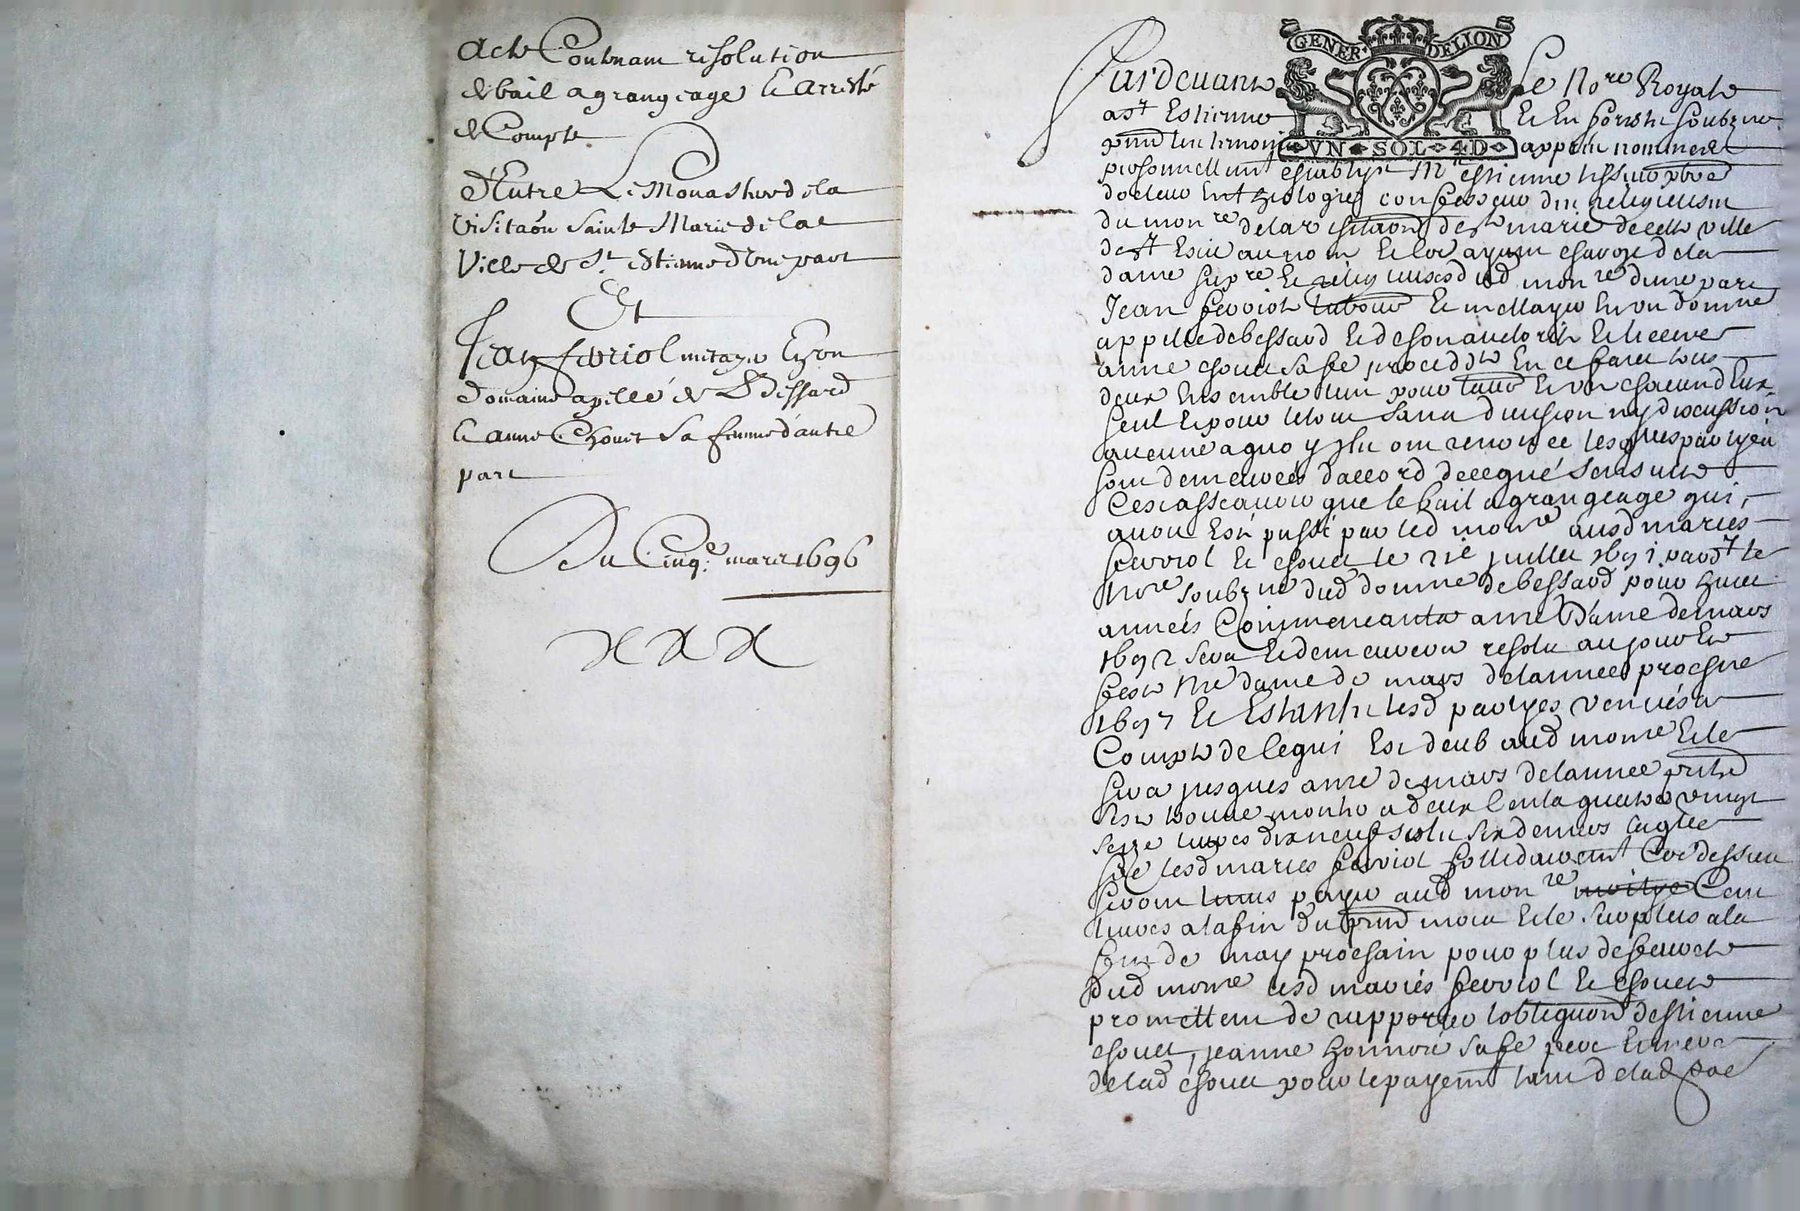 Acte Contenant resolution
de bail a grangeage et arresté
de Compte
D'Entre Le Monastere de la
Visitaôn Sainte Marie de la
Ville de St. estienne d'une part
Et
Jean ferriol metayer en son
Domaine apellé de Bessard
et anne Chouet sa femme d'autre
part
Du Cinqe. mars 1696
GENER DE LION
VN SOL 4D
Pardevant le Nore Royal
a St Estienne et en presence soubzne
appres nommes
personnellemt estably Mre estienne
docteur en theologie confesseur des religieuses
du monre de la visitaon de Ste marie de cette ville
de St Esne au nom et les ayant charge de la
dame supre et religieuses dud monre d'une part
Jean ferriol et mettayer en un domne
appellé de bessard et de son authorité et licence
anne chouet sa fe procedte en ce faict tous
deux ensemble l'un pour l'autre et un chacun d'eux
seul et pour le tout sans division ny discussion
aucune a quoy ilz ont renoncé lesquelles partyes
sont demeurées d'accord de ce que s'ensuit
C'est assçavoir que le bail a grangeage qui
avoit esté passé par led monre ausd mariés
ferriol et chouet le 21e juillet 1691 pardt le
Nore soubzne dud domne de bessard pour huict
années Commencant a nre Dame de mars
1692 sera et demeurera resolu au jour et
feste Nre dame de mars de l'année prochne
1697 Et Estants lesd partyes venues a
Compte de ce qui Est deub aud monre Et le
sera jusques a nre de mars de l'année
Est trouvé monter a deux Cents quatre vingt
seze livres dix neuf solz six deniers laquelle
lesd mariés ferriol sollidairemt Coe dessus
seront tenus payer aud monre Cent
livres a la fin du prnt mois Et le surplus a la
fin de may prochain pour plus de seureté
dud monre lesd mariés ferriol et chouet
promettent de rapporter l'obligaon d'estienne
chouet, jeanne honnoré sa fe pere et mere
de lad chouet pour le payemt tant de lad soe